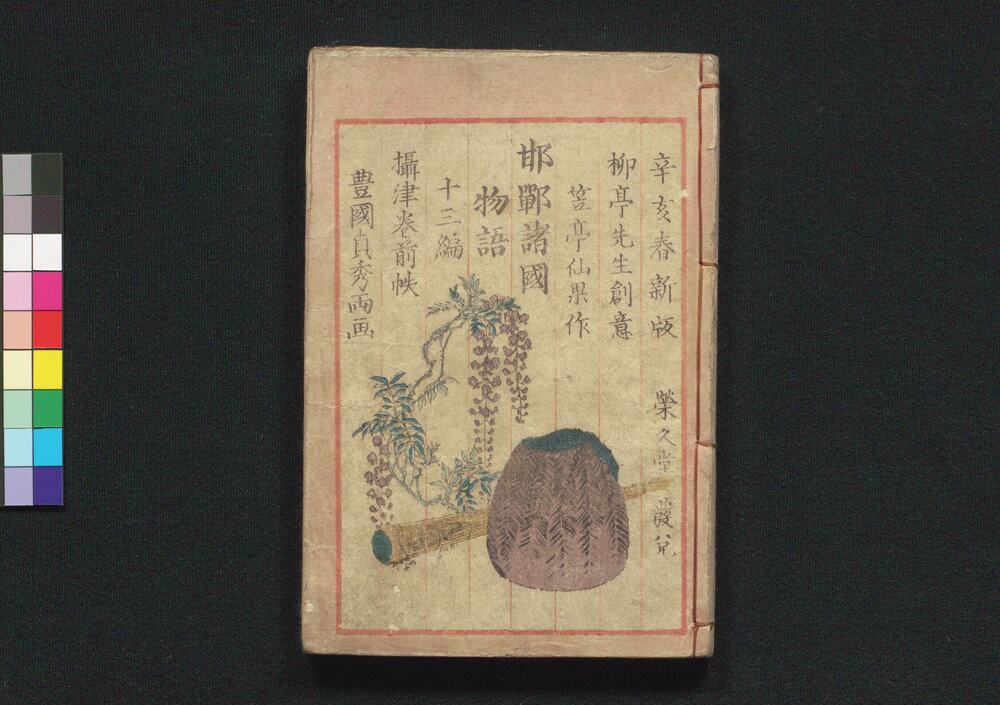 辛亥春新版　榮久堂發兌
柳亭先生創意
笠亭仙果作
邯鄲諸國
物語
十三編
攝津巻前帙
豊國貞秀両画